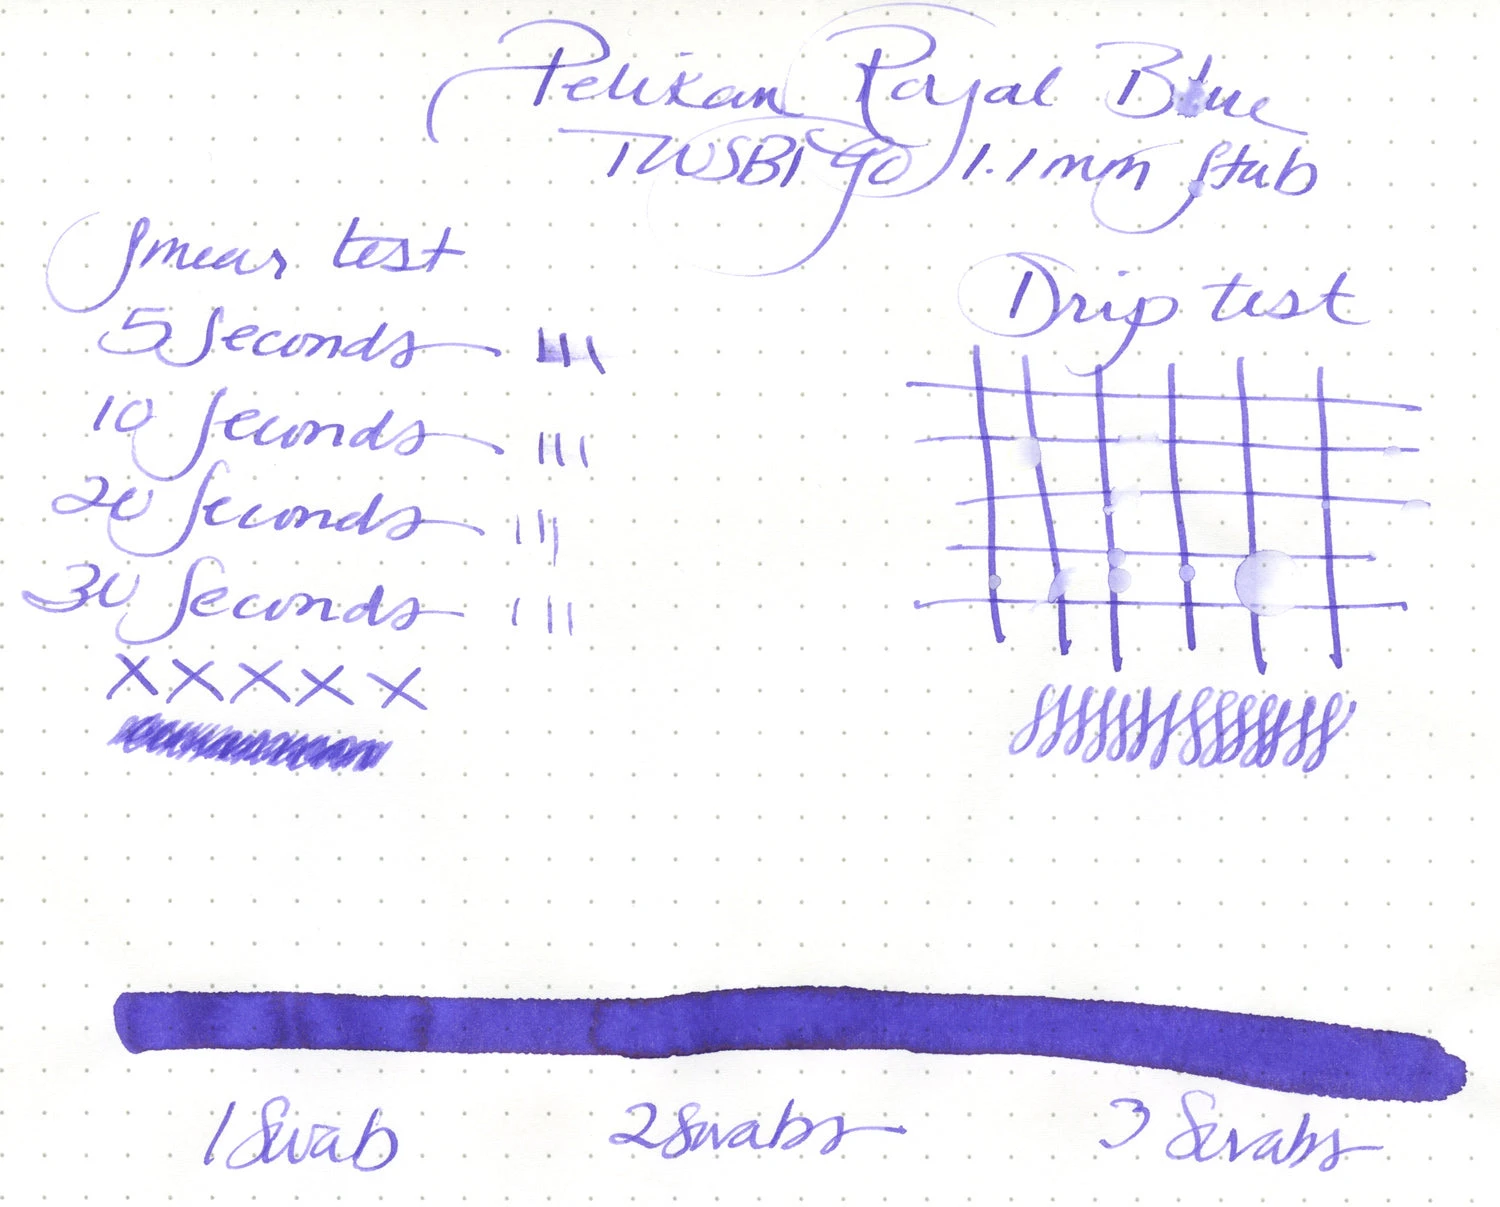 Pelikan Royal Blue
TWSBI go 1.1mm stub
Smear test
5 Seconds
10 Seconds
20 Seconds
30 Seconds
XXXXX
Drip test
1 Swab
2 Swabs
3 Swabs